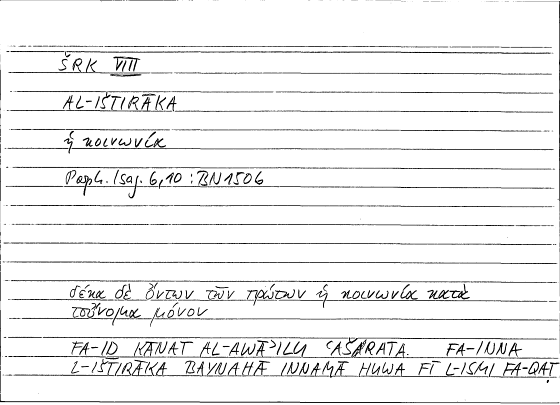 ŠRK VIII
AL-IŠTIRĀKA
ἡ κοινωνία
Porph. Isag. 6,10 : BN1506
δέκα δὲ ὄντων τῶν πρώτων ἡ κοινωνία κατὰ
τοὔνομα μόνον
FA-ID KĀNAT AL-AWĀʾILU ʿAŠARATA. FA-INNA
L-IŠTIRĀKA BAYNAHĀ INNAMĀ HUWA FĪ L-ISMI FA-QAṬ